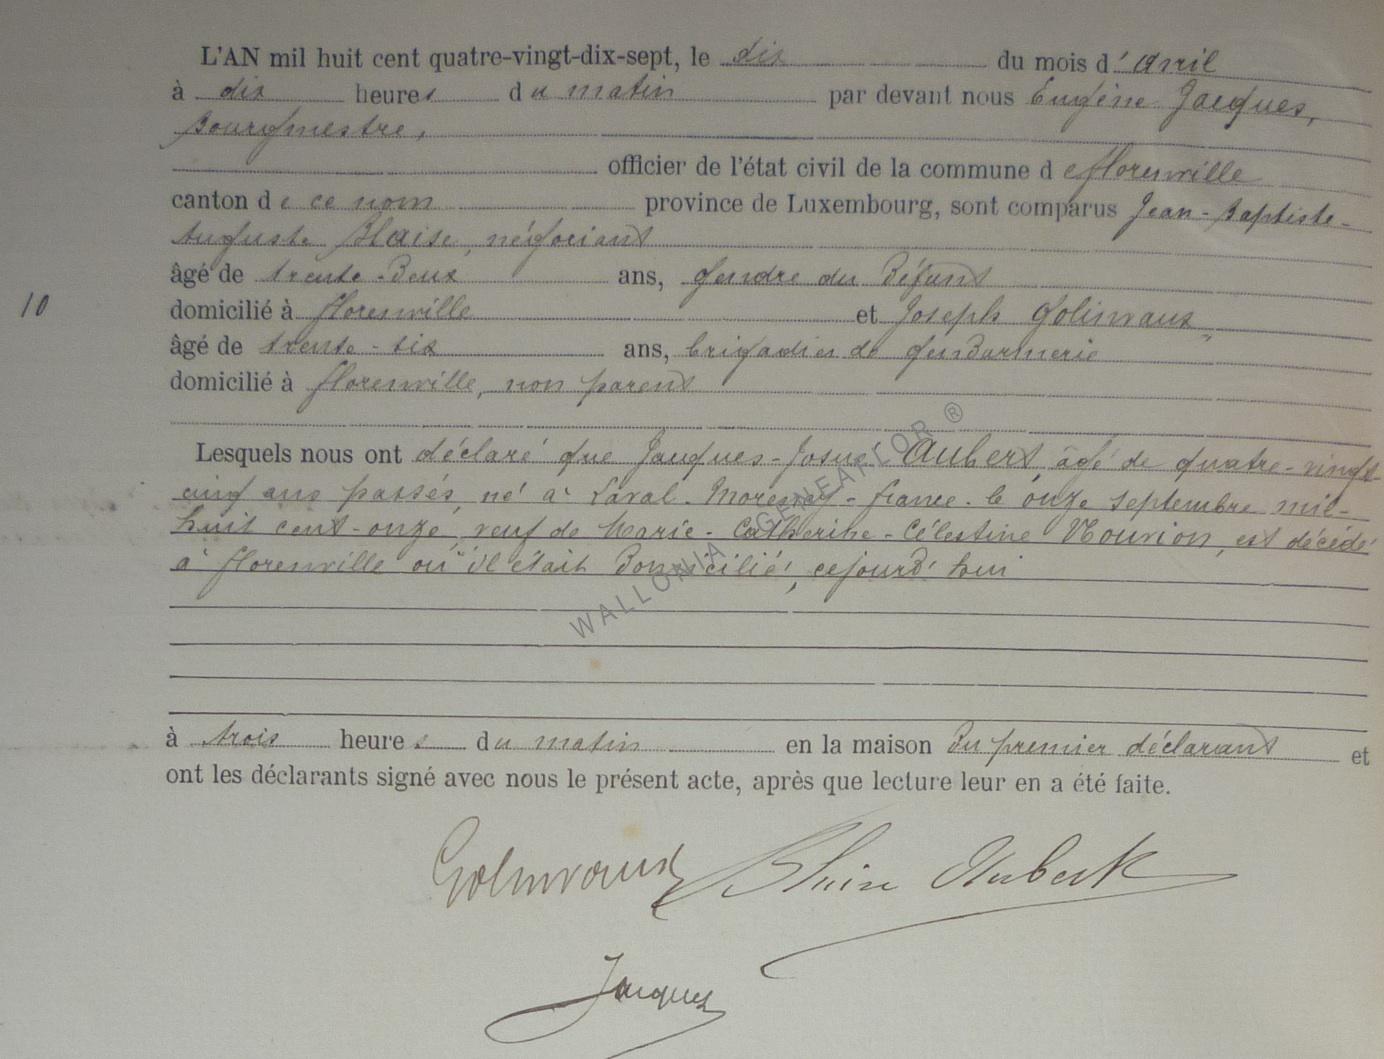 L'AN mil huit cent quatre-vingt-dix-sept, le dix du mois d'avril
à dix heures du matin par devant nous Eugène Jacques,
Bourgmestre,
officier de l'état civil de la commune de florenville
canton de ce nom province de Luxembourg, sont comparus Jean-Baptiste-
Auguste Blaise, négociant
âgé de trente-Deux ans, gendre du Défunt
10
domicilié à florenville et Joseph Golinvaux
âgé de trente-six ans, brigadier de genDarmerie
domicilié à florenville, non parent
Lesquels nous ont déclaré que Jacques-Josué Aubert, âgé de quatre-vingt-
cinq ans passés, né à Laval-Morency-france-le onze septembre mil-
huit cent-onze, veuf de Marie-Catherine-Célestine Nourion, est décédé
à florenville où il était Domicilié, cejourD'hui
WALLONIA GENEAFLOR ®
à trois heures du matin en la maison Du premier déclarant et
ont les déclarants signé avec nous le présent acte, après que lecture leur en a été faite.
Golinvaux Blaise Aubert
Jacques